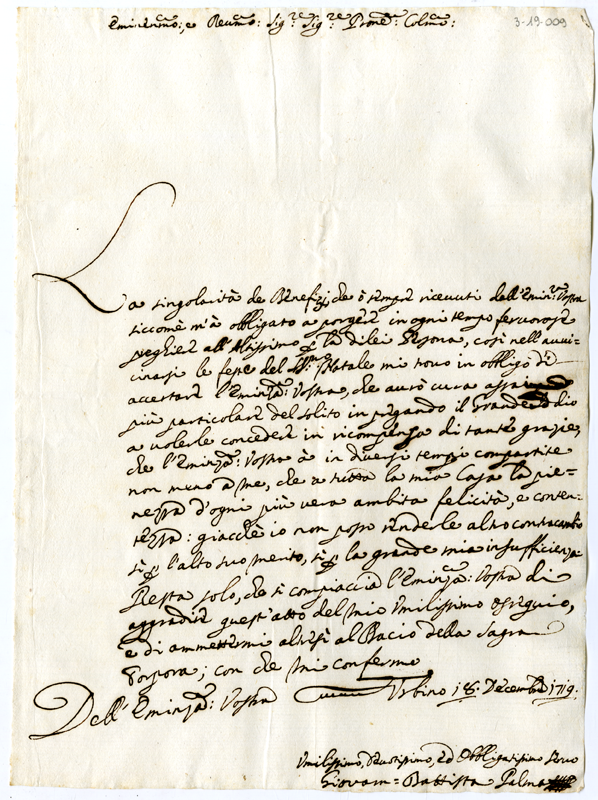 3-19-009
Eminen.mo: e Reu.mo: Sig.re Sig.re Prone: Colmo:
La singolarità de Benefizj, che ò sempre riceuuti dall'Emin.za Vostra
siccome m'à obligato a porger in ogni tempo feruorose
preghier all'Altissimo p la dilei Persona, così nell'auui-
cinarsi le feste del SS.mo Natale mi trouo in obligo di
accertar l'Eminza: Vostra, che aurò cura
più particolar del solito in pregando il Grande Iddio
a volerle conceder in ricompensa di tante grazie,
che l'Eminza: Vostra à in diuersi tempi compartite
non meno a me, che a tutta la mia Casa la pie=
nezza d'ogni più vera ambita felicità, e conten=
tezza: giacchè io non posso renderle altro contracambio
sì p l'alto suo merito, sì p la grande mia insufficienza.
Resta solo, che si compiaccia l'Eminza: Vostra di
aggradir quest'atto del mio Vmilissimo ossequio,
e di ammettermi altresì al Bacio della Sagra
Porpora; con che mi confermo
Dell'Eminza: Vostra Vrbino 18: Decembre 1719.
Vmilissimo, Deuotissimo, ed Obbligatissimo Seruo
Giouam= Battista Palma